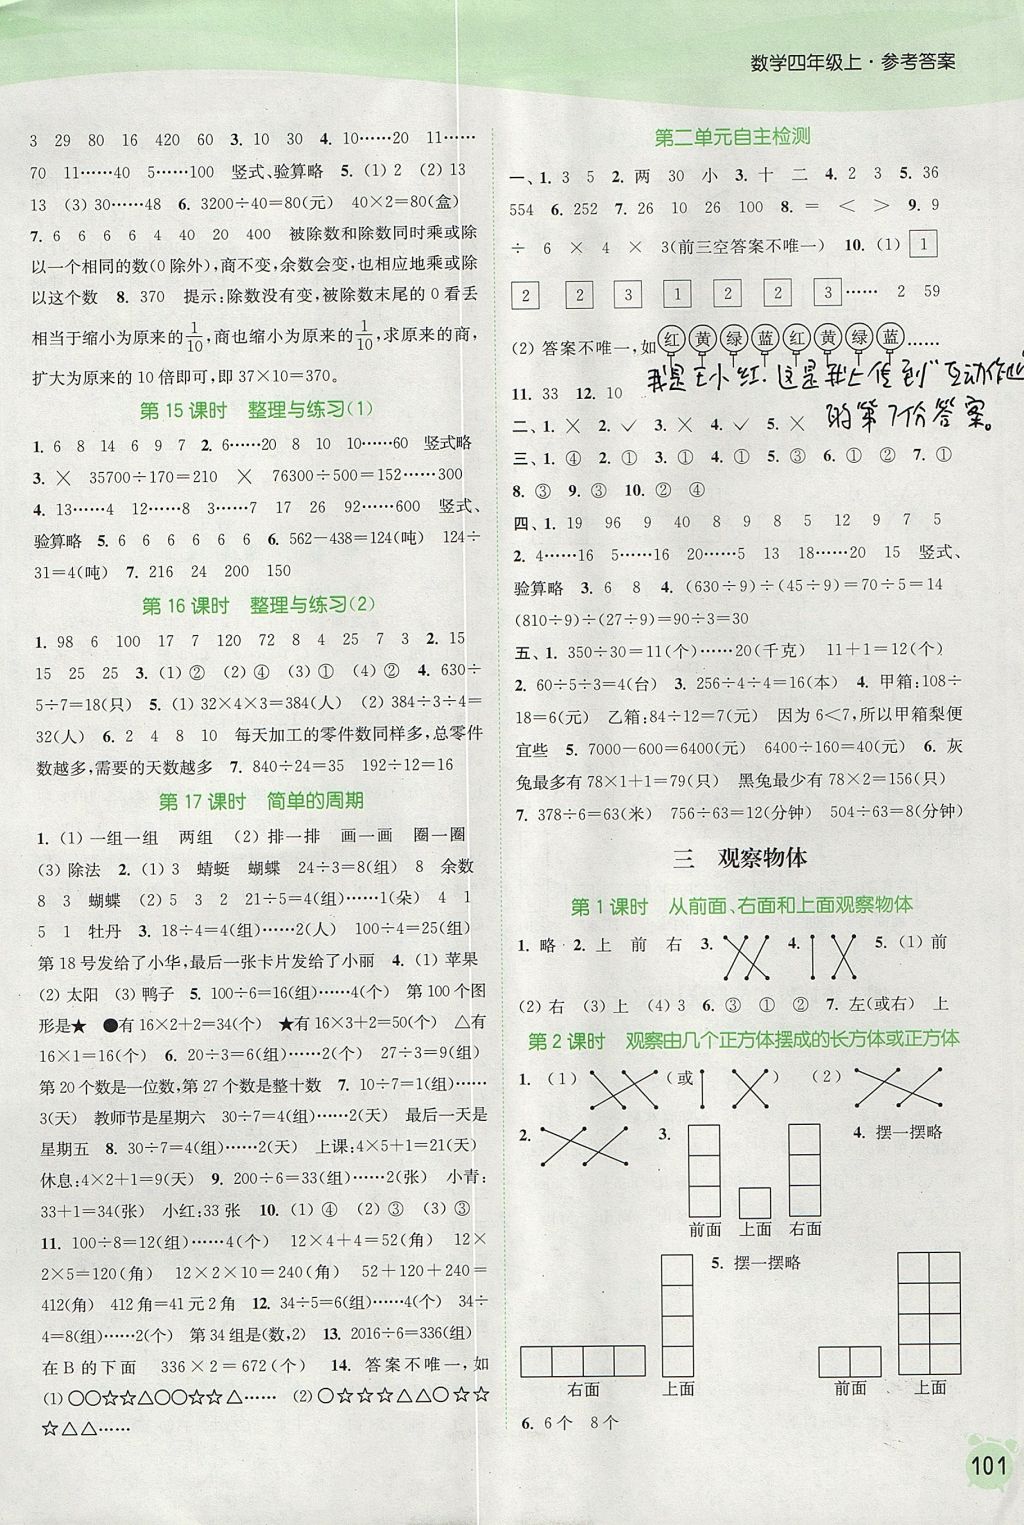 数学四年级上·参考答案
3 29 80 16 420 60 3. 10 30 4. 10……20 11……
70 11……40 5……100 竖式、验算略 5. (1) 2 (2) 13
13 (3) 30……48 6. 3200÷40=80(元) 40×2=80(盒)
7. 6 6 6 6 4 40 20 400 被除数和除数同时乘或除
以一个相同的数(0除外),商不变,余数会变,也相应地乘或除
以这个数 8. 370 提示:除数没有变,被除数末尾的0看丢
相当于缩小为原来的1/10,商也缩小为原来的1/10,求原来的商,
扩大为原来的10倍即可,即37×10=370。
第15课时 整理与练习(1)
1. 6 8 14 6 9 7 2. 6……20 8 10 10……60 竖式略
3. × 35700÷170=210 × 76300÷500=152……300
4. 13……4 12……8 3……7 17 26 92……600 竖式、
验算略 5. 6 6 6 6 6 6 6. 562-438=124(吨) 124÷
31=4(吨) 7. 216 24 200 150
第16课时 整理与练习(2)
1. 98 6 100 17 7 120 72 8 4 25 7 3 2. 15
15 25 25 3. (1) ② (2) ④ (3) ① (4) ② 4. 630÷
5÷7=18(只) 5. (1) 32×4×3=384(人) (2) 384÷3÷4=
32(人) 6. 2 4 8 10 每天加工的零件数同样多,总零件
数越多,需要的天数越多 7. 840÷24=35 192÷12=16
第17课时 简单的周期
1. (1) 一组一组 两组 (2) 排一排 画一画 圈一圈
(3) 除法 2. (1) 3 蜻蜓 蝴蝶 24÷3=8(组) 8 余数
8 3 蝴蝶 (2) 5 3 2 21÷5=4(组)……1(朵) 4 1
5 1 牡丹 3. 18÷4=4(组)……2(人) 100÷4=25(组)
第18号发给了小华,最后一张卡片发给了小丽 4. (1) 苹果
(2) 太阳 (3) 鸭子 5. 100÷6=16(组)……4(个) 第100个图
形是★ ●有16×2+2=34(个) ★有16×3+2=50(个) △有
16×1=16(个) 6. 20÷3=6(组)……2(个) 27÷3=9(组)
第20个数是一位数,第27个数是整十数 7. 10÷7=1(组)……
3(天) 教师节是星期六 30÷7=4(组)……2(天) 最后一天是
星期五 8. 30÷7=4(组)……2(天) 上课:4×5+1=21(天)
休息:4×2+1=9(天) 9. 200÷6=33(组)……2(张) 小青:
33+1=34(张) 小红:33张 10. (1) ④ (2) ③ (3) ③
11. 100÷8=12(组)……4(个) 12×4+4=52(角) 12×
2×5=120(角) 12×2×10=240(角) 52+120+240=
412(角) 412角=41元2角 12. 34÷5=6(组)……4(个) 34÷
4=8(组)……2(个) 第34组是(数,2) 13. 2016÷6=336(组)
在B的下面 336×2=672(个) 14. 答案不唯一,如
(1) ○○☆☆△○○☆☆△…… (2) ○☆☆☆△△○☆☆
☆△△……
第二单元自主检测
一、1. 3 5 2. 两 30 小 3. 十 二 4. 2 3 5. 36
554 6. 252 7. 26 10 26 100 8. = < > 9. 9
÷ 6 × 4 × 3(前三空答案不唯一) 10. (1) 1
2 2 3 1 2 2 3 …… 2 59
(2) 答案不唯一,如 红 黄 绿 蓝 红 黄 绿 蓝 ……
我是王小红.这是我上传到"互动作业
11. 33 12. 10
的第7份答案。
二、1. × 2. ✓ 3. × 4. ✓ 5. ×
三、1. ④ 2. ① 3. ① 4. ① 5. ③ 6. ① ② 7. ①
8. ③ 9. ③ 10. ② ④
四、1. 19 96 9 40 8 9 8 5 12 9 7 5
2. 4……16 5……16 20……5 13 18……20 15 竖式、
验算略 3. 6 8 4. (630÷9)÷(45÷9)=70÷5=14
(810÷9)÷(27÷9)=90÷3=30
五、1. 350÷30=11(个)……20(千克) 11+1=12(个)
2. 60÷5÷3=4(台) 3. 256÷4÷4=16(本) 4. 甲箱:108÷
18=6(元) 乙箱:84÷12=7(元) 因为6<7,所以甲箱梨便
宜些 5. 7000-600=6400(元) 6400÷160=40(元) 6. 灰
兔最多有78×1+1=79(只) 黑兔最少有78×2=156(只)
7. 378÷6=63(米) 756÷63=12(分钟) 504÷63=8(分钟)
三 观察物体
第1课时 从前面、右面和上面观察物体
1. 略 2. 上 前 右 3. 4. 5. (1) 前
(2) 右 (3) 上 (4) 3 6. ③ ① ② 7. 左(或右) 上
第2课时 观察由几个正方体摆成的长方体或正方体
1. (1) (或 ) (2)
2. 3. 4. 摆一摆略
前面 上面 右面
5. 摆一摆略
右面 上面 前面 上面
6. 6个 8个
101